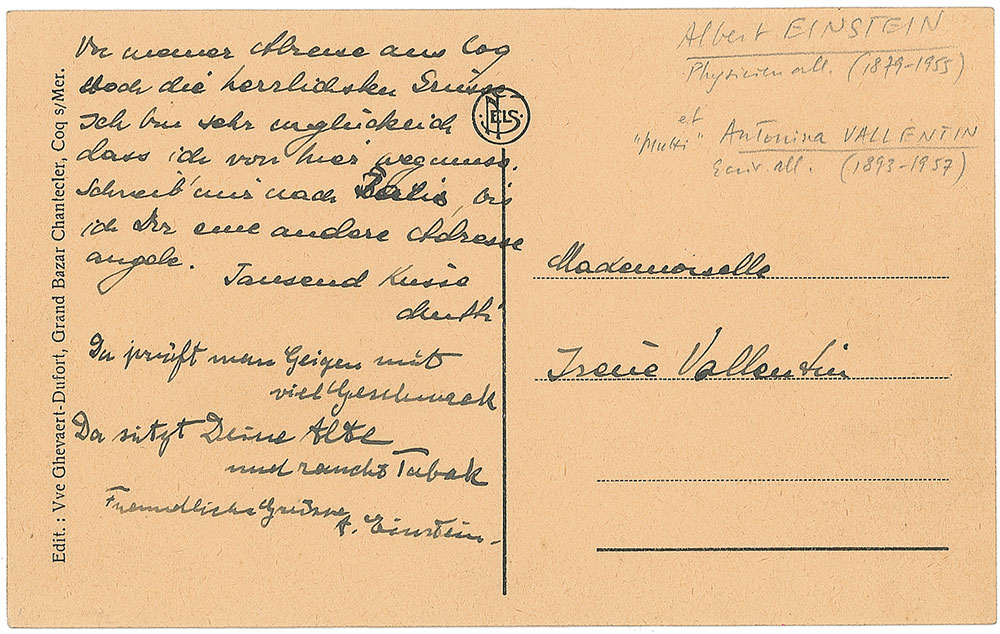 Vor meiner Abreise aus Coq
noch die herrlichsten Grüsse
Ich bin sehr unglücklich
dass ich von hier wegmuss.
Schreib' mir nach Paris, bis
ich Dir eine andere Adresse
angebe.
Tausend Küsse
Mutti
Da prüft man Geigen mit
viel Geschmack
Da sitzt Deine Alte
und raucht Tabak
Freundliche Grüsse
A. Einstein.
NELS
Edit. : Vve Ghevaert-Dufort, Grand Bazar Chantecler, Coq s/Mer.
Albert EINSTEIN
Physicien all. (1879-1955)
et
"Mutti" Antonina VALLENTIN
Ecriv. all. (1893-1957)
Mademoiselle
Irène Vallentin